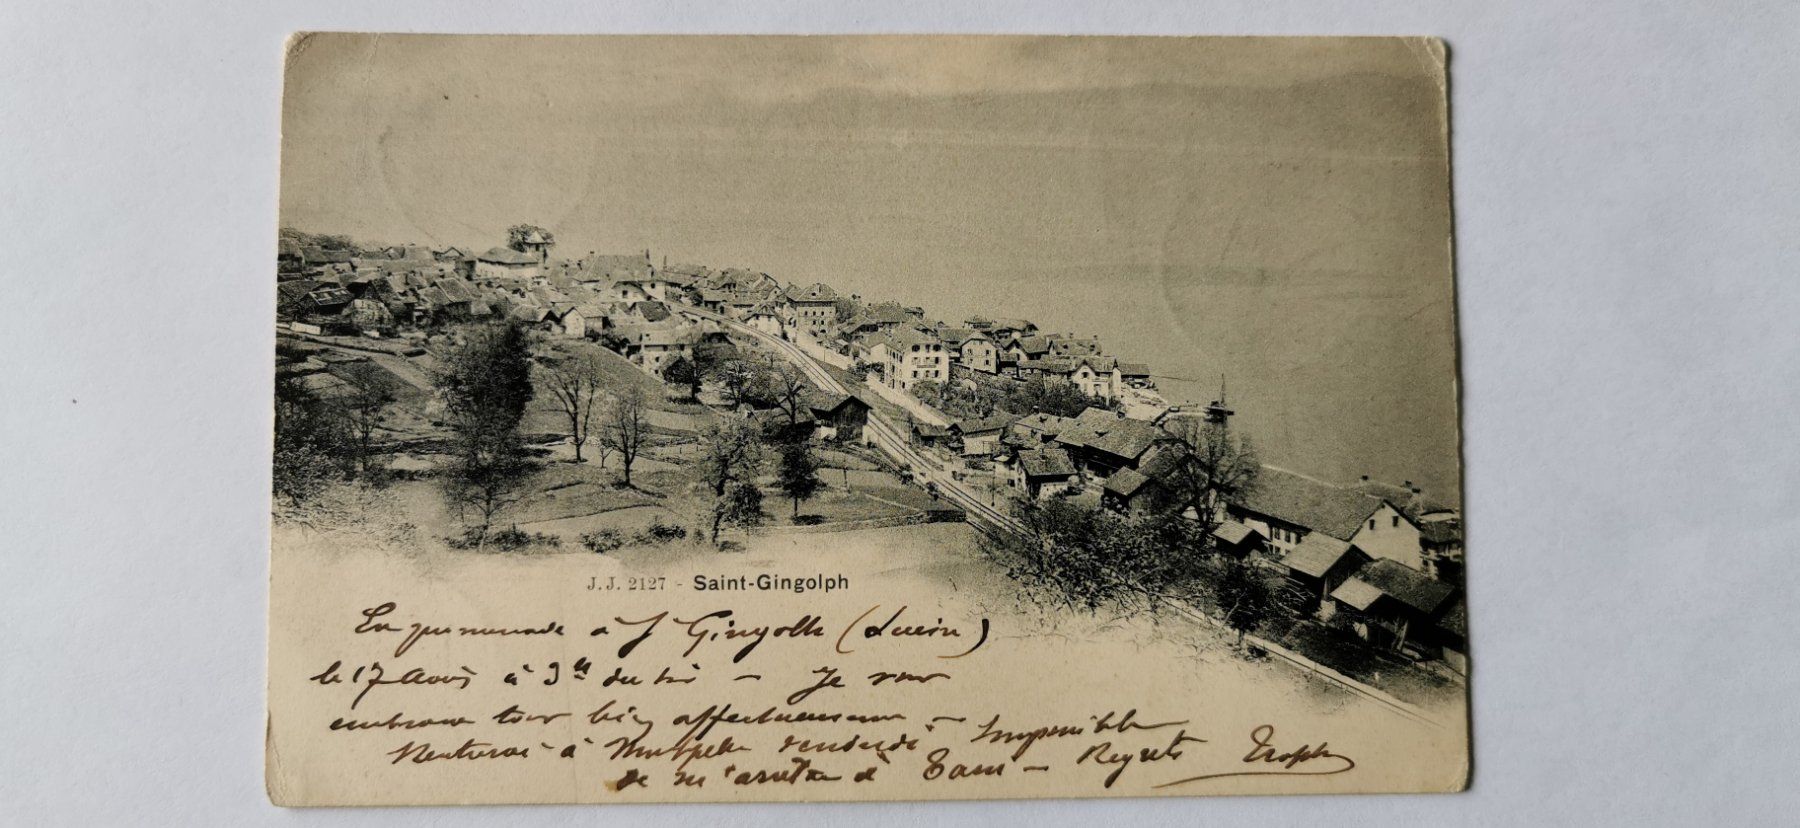 J.J. 2127 - Saint-Gingolph
En promenade à St Gingolph (
le 17 Août à 3h du soir - Je vous
embrasse tous bien affectueusement - Impossible
Rentrerai à Montpellier vendredi
de m'arrêter à - Regrets